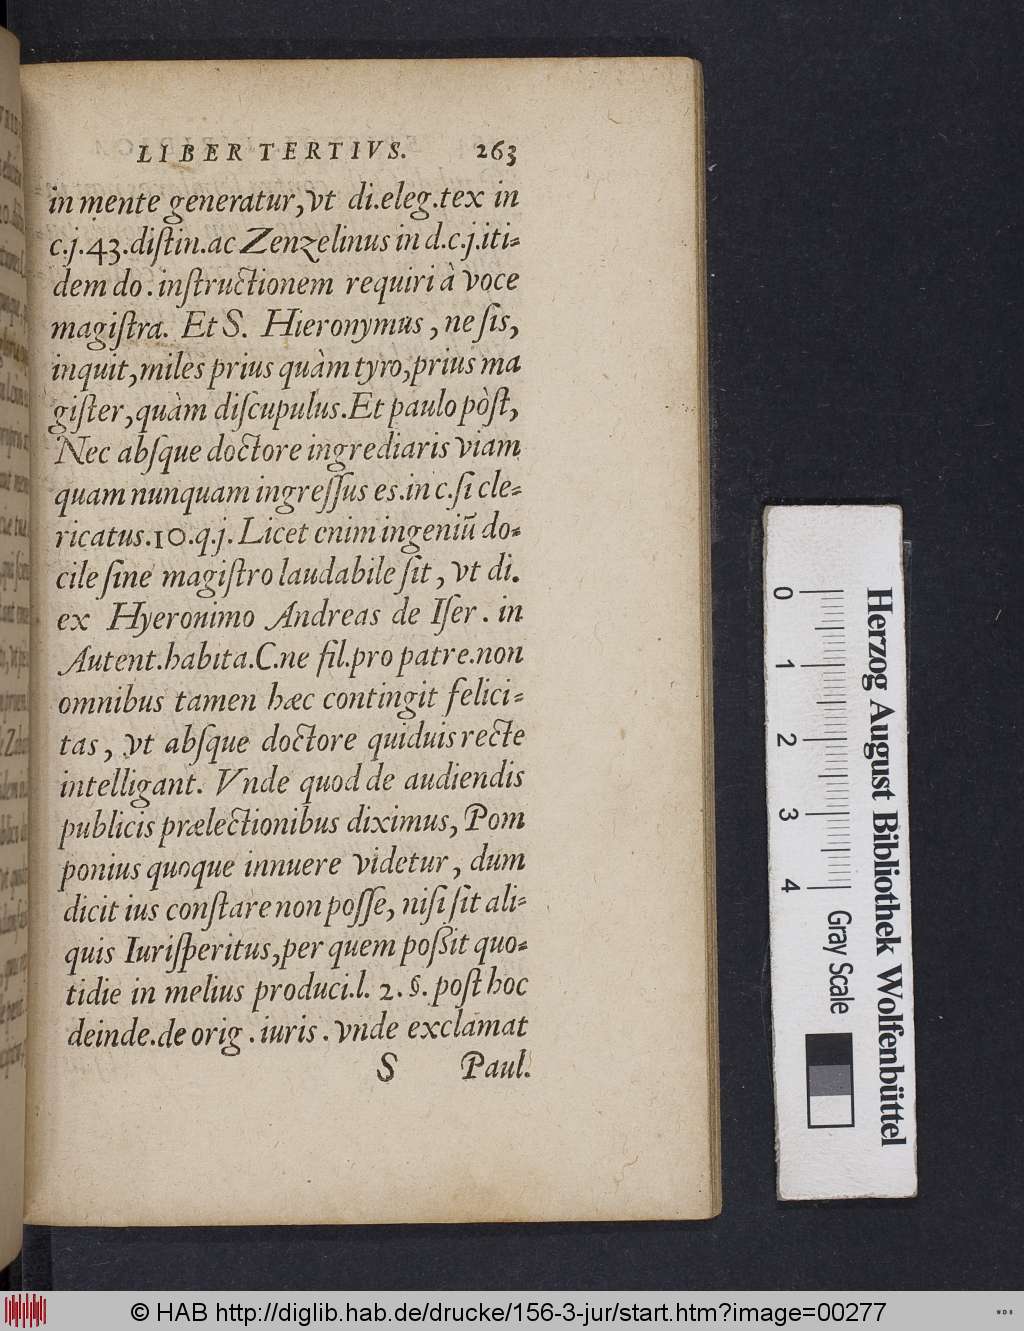 LIBER TERTIVS. 263
in mente generatur, vt di.eleg.tex in
c.j.43.distin.ac Zenzelinus in d.c.j.iti-
dem do. instructionem requiri à voce
magistra. Et S. Hieronymus, ne sis,
inquit, miles prius quàm tyro, prius ma
gister, quàm discupulus. Et paulo pòst,
Nec absque doctore ingrediaris viam
quam nunquam ingressus es.in c.si cle-
ricatus.10.q.j. Licet enim ingeniū do-
cile sine magistro laudabile sit, vt di.
ex Hyeronimo Andreas de Iser. in
Autent.habita.C.ne fil.pro patre.non
omnibus tamen hæc contingit felici-
tas, vt absque doctore quiduis recte
intelligant. Vnde quod de audiendis
publicis prælectionibus diximus, Pom
ponius quoque innuere videtur, dum
dicit ius constare non posse, nisi sit ali-
quis Iurisperitus, per quem possit quo-
tidie in melius produci.l. 2. §. post hoc
deinde.de orig. iuris. vnde exclamat
S Paul.
Herzog August Bibliothek Wolfenbüttel
0 1 2 3 4 Gray Scale
© HAB http://diglib.hab.de/drucke/156-3-jur/start.htm?image=00277